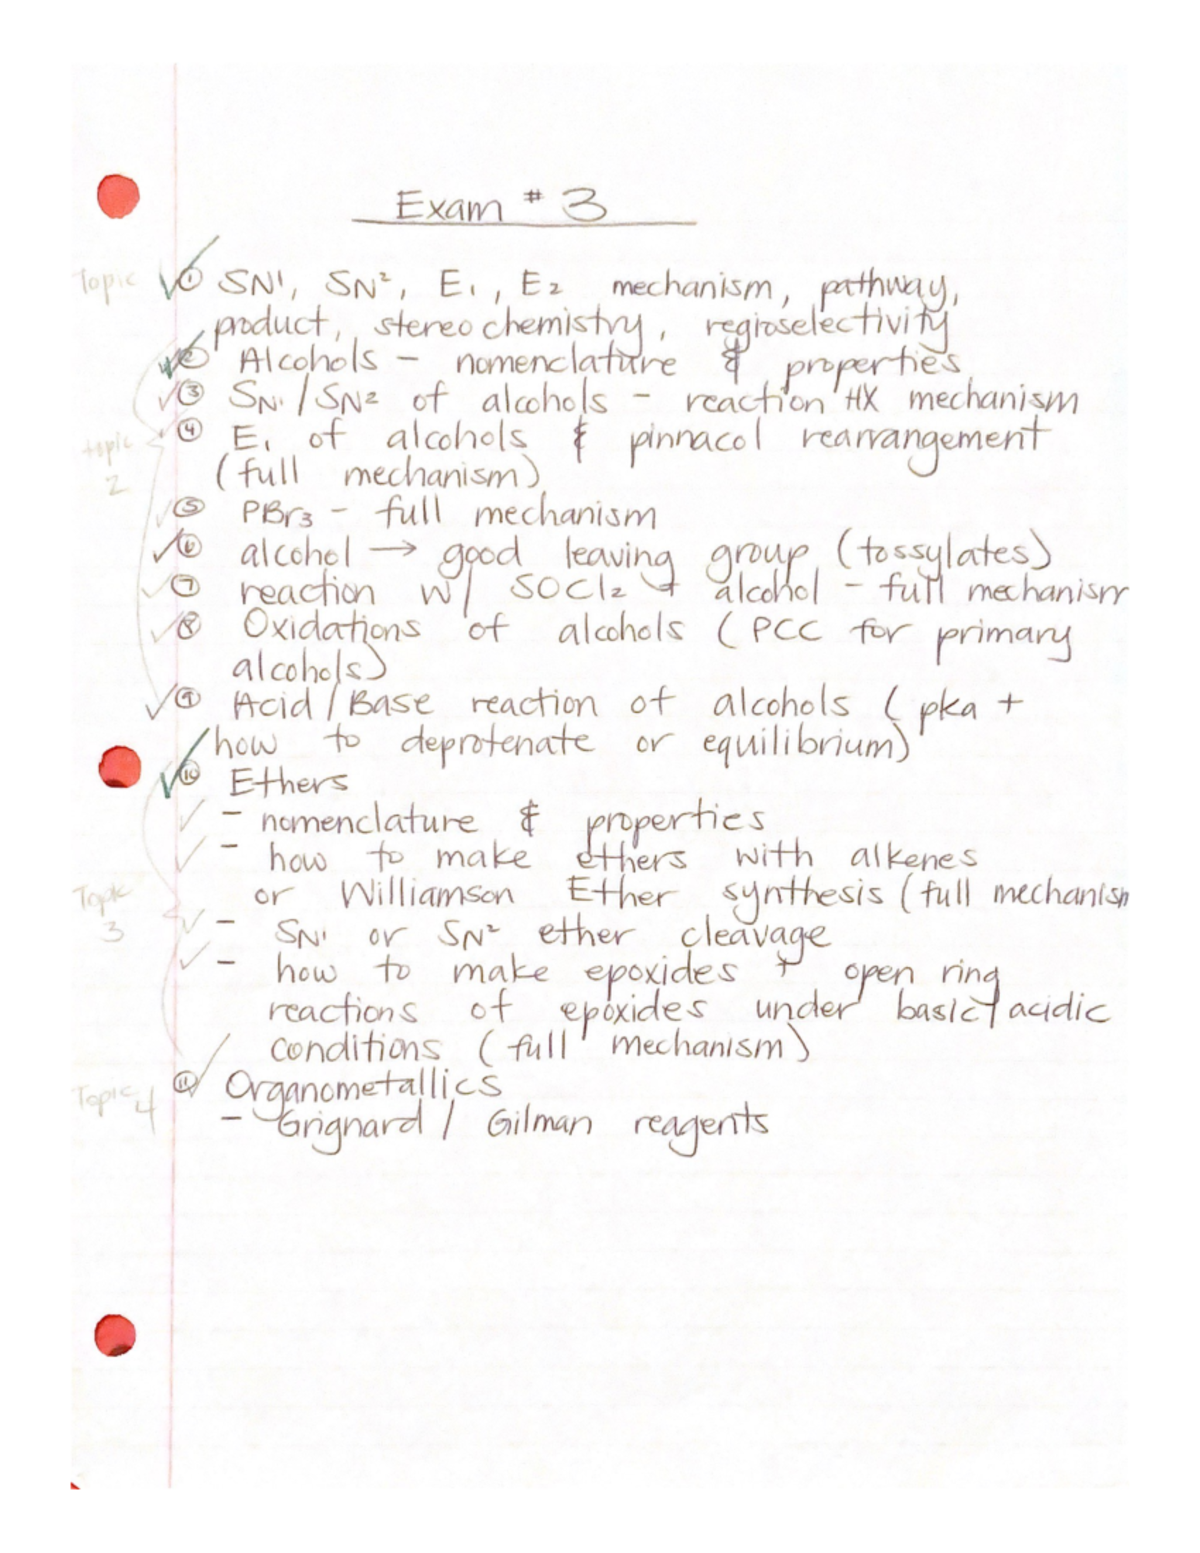 Exam # 3
Topic ① SN1, SN2, E1, E2 mechanism, pathway,
product, stereochemistry, regioselectivity
② Alcohols - nomenclature & properties
③ SN1/SN2 of alcohols - reaction HX mechanism
④ E1 of alcohols & pinnacol rearrangement
topic 2
(full mechanism)
⑤ PBr3 - full mechanism
⑥ alcohol → good leaving group (tossylates)
⑦ reaction w/ SOCl2 + alcohol - full mechanism
⑧ Oxidations of alcohols (PCC for primary
alcohols)
⑨ Acid/Base reaction of alcohols (pka +
how to deprotenate or equilibrium)
⑩ Ethers
- nomenclature & properties
- how to make ethers with alkenes
or Williamson Ether synthesis (full mechanism
Topic 3
- SN1 or SN2 ether cleavage
- how to make epoxides + open ring
reactions of epoxides under basic/acidic
conditions (full mechanism)
Topic 4 ⑪ Organometallics
- Grignard / Gilman reagents